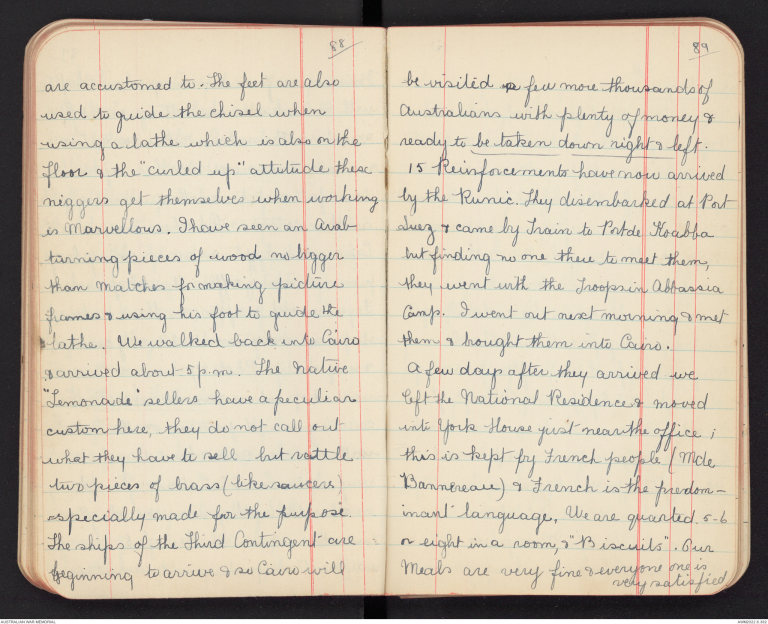 88
are accustomed to. The feet are also
used to guide the chisel when
using a lathe which is also on the
floor & the "curled up" attitude these
niggers get themselves when working
is Marvellous. I have seen an Arab
turning pieces of wood no bigger
than matches for making picture
frames & using his foot to guide the
lathe. We walked back into Cairo
& arrived about 5 p.m. The Native
"Lemonade" sellers have a peculiar
custom here, they do not call out
what they have to sell but rattle
two pieces of brass (like saucers)
especially made for the purpose.
The ships of the Third Contingent are
beginning to arrive & so Cairo will
89
be visited by few more thousands of
Australians with plenty of money &
ready to be taken down right & left.
15 Reinforcements have now arrived
by the Runic. They disembarked at Port
Suez & came by Train to Port de Koubba
but finding no one there to meet them,
they went with the Troops in Abbassia
Camp. I went out next morning & met
them & bought them into Cairo.
A few days after they arrived we
left the National Residence & moved
into York House just near the office;
this is kept by French people (Mde
) & French is the predom-
inant language. We are quarted 5-6
or eight in a room, & "Biscuits". Our
Meals are very fine & everyone one is
very satisfied
AUSTRALIAN WAR MEMORIAL